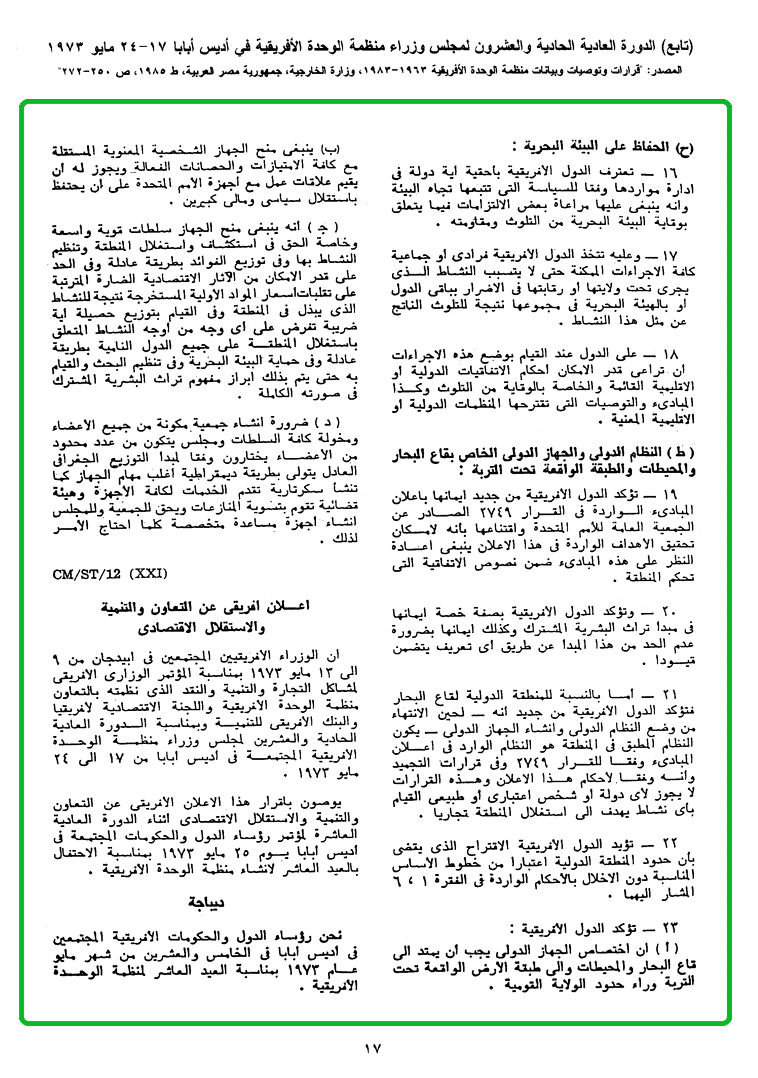 (تابع) الدورة العادية الحادية والعشرون لمجلس وزراء منظمة الوحدة الأفريقية في أديس أبابا ١٧-٢٤ مايو ١٩٧٣
المصدر: "قرارات وتوصيات وبيانات منظمة الوحدة الأفريقية ١٩٦٣-١٩٨٣، وزارة الخارجية، جمهورية مصر العربية، ط ١٩٨٥، ص ٢٥٠-٢٧٢"
(ح) الحفاظ على البيئة البحرية :
١٦ — تعترف الدول الافريقية بأحقية اية دولة فى
ادارة مواردها وفقا للسياسة التى تتبعها تجاه البيئة
وانه ينبغى عليها مراعاة بعض الالتزامات فيما يتعلق
بوقاية البيئة البحرية من التلوث ومقاومته .
١٧ — وعليه تتخذ الدول الافريقية فرادى او جماعية
كافة الاجراءات الممكنة حتى لا يتسبب النشاط الـذى
يجرى تحت ولايتها او رقابتها فى الاضرار بباقى الدول
او بالهيئة البحرية فى مجموعها نتيجة للتلوث الناتج
عن مثل هذا النشاط .
١٨ — على الدول عند القيام بوضع هذه الاجراءات
ان تراعى قدر الامكان أحكام الاتفاقيات الدولية او
الاقليمية القائمة والخاصة بالوقاية من التلوث وكـذا
المبادىء والتوصيات التى تقترحها المنظمات الدولية او
الاقليمية المعنية .
(ط) النظام الدولى والجهاز الدولى الخاص بقاع البحار
والمحيطات والطبقة الواقعة تحت التربة :
١٩ — تؤكد الدول الافريقية من جديد ايمانها باعلان
المبادىء الـواردة فى القـرار ٢٧٤٩ الصـادر عن
الجمعية العامة للأمم المتحدة واقتناعها بأنه لامـكان
تحقيق الأهداف الواردة فى هذا الاعلان ينبغى اعـادة
النظر على هذه المبادىء ضمن نصوص الاتفاقية التى
تحكم المنطقة .
٢٠ — وتؤكد الدول الافريقية بصفة خصة ايمانها
فى مبدأ تراث البشرية المشترك وكذلك ايمانها بضرورة
عدم الحد من هذا المبدأ عن طريق اى تعريف يتضمن
قيـودا .
٢١ — أمـا بالنسبة للمنطقة الدولية لقاع البحار
فتؤكد الدول الافريقية من جديد أنه — لحين الانتهاء
من وضع النظام الدولى وانشاء الجهاز الدولى — يكون
النظام المطبق فى المنطقة هو النظام الوارد فى اعـلان
المبادىء وفقـا للقرار ٢٧٤٩ وفى قرارات التجميد
وأنـه وفقـا لأحكام هـذا الاعلان وهـذه القرارات
لا يجوز لأى دولة او شخص اعتبارى أو طبيعى القيام
بأى نشاط يهدف الى استغلال المنطقة تجاريا .
٢٢ — تؤيد الدول الافريقية الاقتراح الذى يقضى
بأن حدود المنطقة الدولية اعتبارا من خطوط الأساس
المناسبة دون الاخلال بالأحكام الواردة فى الفقرة ١ ، ٦
المشار اليهما .
٢٣ — تؤكد الدول الافريقية :
( أ ) ان اختصاص الجهاز الدولى يجب أن يمتد الى
قاع البحار والمحيطات والى طبقة الأرض الواقعة تحت
التربة وراء حدود الولاية القومية .
(ب) ينبغى منح الجهاز الشخصية المعنوية المستقلة
مع كافة الامتيازات والحصانات الفعالة ويجوز له أن
يقيم علاقات عمل مع أجهزة الأمم المتحدة على أن يحتفظ
باستقلال سياسى ومالى كبيرين .
( جـ ) أنه ينبغى منح الجهاز سلطات قوية واسعة
وخاصة الحق فى استكشاف واستغلال المنطقة وتنظيم
النشاط بها وفى توزيع الفوائد بطريقة عادلة وفى الحد
على قدر الامكان من الآثار الاقتصادية الضارة المترتبة
على تقلبات أسعار المواد الأولية المستخرجة نتيجة للنشاط
الذى يبذل فى المنطقة وفى القيام بتوزيع حصيلة أية
ضريبة تفرض على أى وجه من أوجه النشاط المتعلق
باستغلال المنطقـة على جميع الدول النامية بطريقة
عادلة وفى حماية البيئة البحرية وفى تنظيم البحث والقيام
به حتى يتم بذلك ابراز مفهوم تراث البشرية المشترك
فى صورته الكاملة .
( د ) ضرورة انشاء جمعية مكونة من جميع الأعضاء
ومخولة كافة السلطات ومجلس يتكون من عدد محدود
من الأعضـاء يختارون وفقا لمبدأ التوزيع الجغرافى
العادل يتولى بطريقة ديمقراطية أغلب مهام الجهاز كما
تنشأ سكرتارية تقدم الخدمات لكافة الأجهزة وهيئة
قضائية تقوم بتسوية المنازعات ويحق للجمعية وللمجلس
انشاء أجهزة مساعدة متخصصة كلما احتاج الأمـر
لذلك .
CM/ST/12 (XXI)
اعـلان افريقى عن التعاون والتنمية
والاستقلال الاقتصادى
ان الوزراء الافريقيين المجتمعين فى ابيدجان من ٩
الى ١٣ مايو ١٩٧٣ بمناسبة المؤتمر الوزارى الأفريقى
لمشاكل التجارة والتنمية والنقد الذى نظمته بالتعاون
منظمة الوحدة الأفريقية واللجنة الاقتصادية لافريقيا
والبنك الأفريقى للتنميـة وبمناسبة الـدورة العادية
الحادية والعشرين لمجلس وزراء منظمـة الوحـدة
الافريقية المجتمعـة فى اديس أبابا من ١٧ الى ٢٤
مايو ١٩٧٣ .
يوصون باقرار هذا الاعلان الأفريقى عن التعاون
والتنمية والاستقلال الاقتصادى اثناء الدورة العادية
العاشرة لمؤتمر رؤساء الدول والحكومات المجتمعة فى
أديس أبابا يـوم ٢٥ مايو ١٩٧٣ بمناسبة الاحتفال
بالعيد العاشر لانشاء منظمة الوحدة الأفريقية .
ديباجة
نحن رؤساء الدول والحكومات الأفريقية المجتمعين
فى أديس أبابا فى الخامس والعشرين من شهر مايو
عـام ١٩٧٣ بمناسبة العيد العاشر لمنظمة الوحـدة
الأفريقية .
١٧